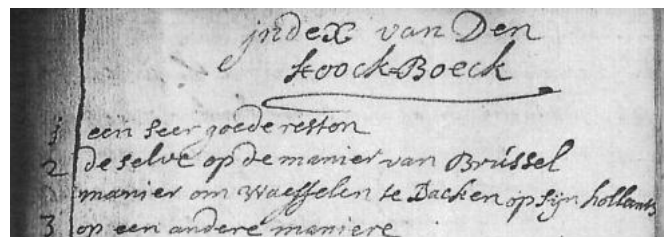 jndex van Den
koock=Boeck
1 een seer goede reston
2 de selve op de manier van Brussel
manier om waeffelen te Backen op sijn hollants
3 op een andere maniere